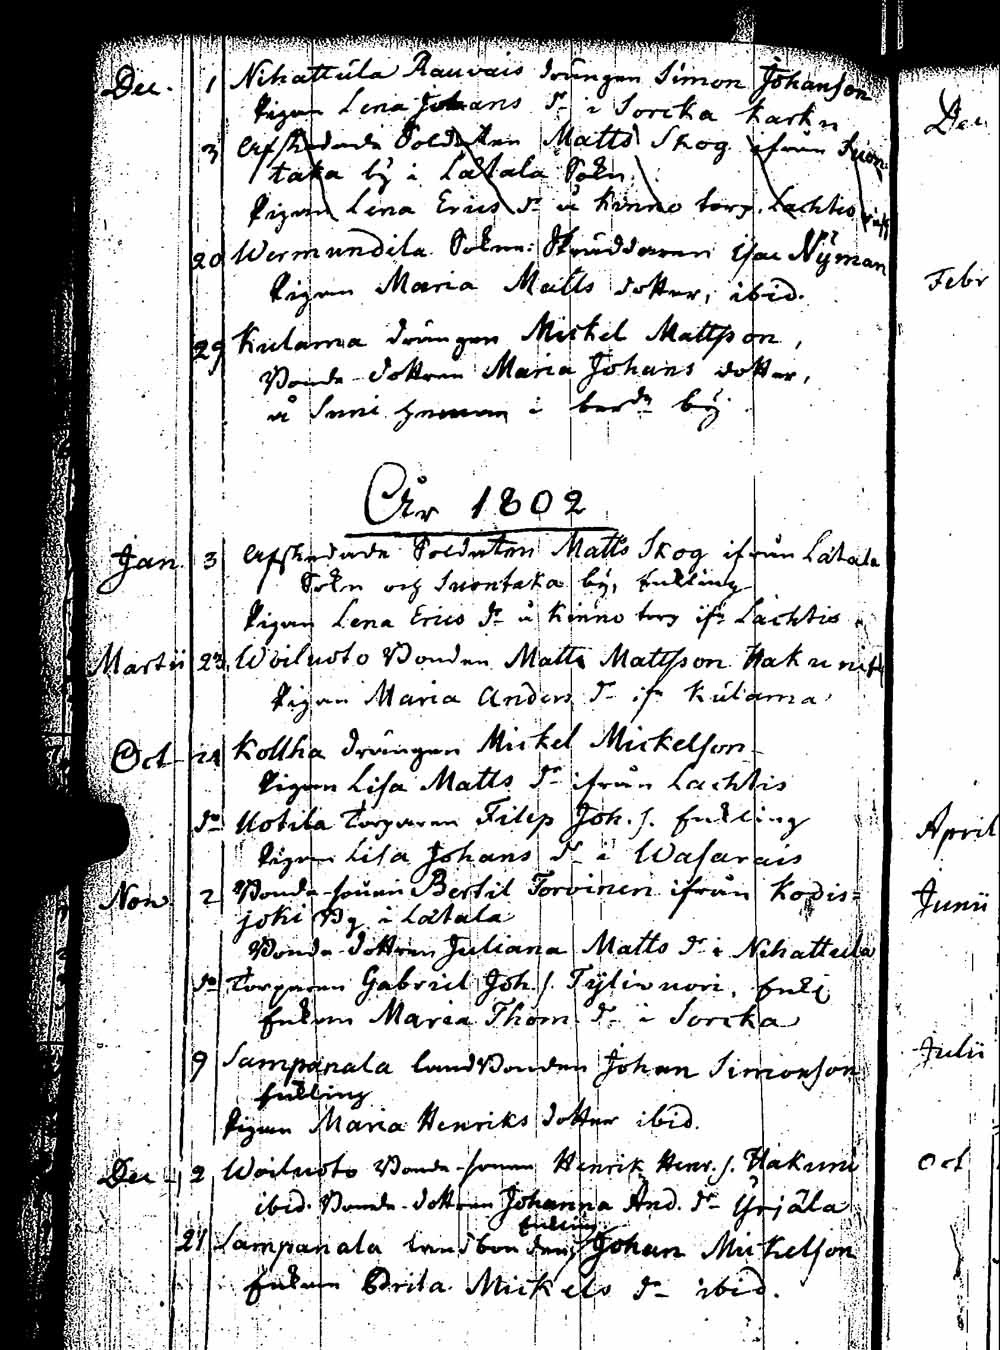 Dec. 1 Nihattula Rauvais drängen Simon Johanson
Pigan Lena Johans dr i Sorcka Karku
3 Afskedade Soldaten Matts Skog ifrån Suon
taka bÿ i Lætala Sokn.
Pigan Lena Erics dr å Kinno torp. Lachtis
20 Wermundila Sokne: Skräddaren Isac Nÿman
Pigan Maria Matts dotter, ibid.
29 Kulama drängen Mickel Mattsson,
Bonde dottren Maria Johans dotter,
å Suni hemman i berdn bÿ.
År 1802
Jan. 3 Afskedade Soldaten Matts Skog ifrån Lætala
Sokn och Suontaka bÿ, enkling
Pigan Lena Erics dr å Kinno torp ifr Lachtis
Martii 23 Woiluoto Bonden Matts Mattsson Hakuni
Pigan Maria Anders dr ifr Kulama
Oct. 24 Kollha drängen Mickel Mickelson
Pigan Lisa Matts dr ifrån Lachtis
do Uotila Torparen Filip Joh. s. Enkling
Pigan Lisa Johans dr i Wasarais
Nov. 2 Bonde sonen Bertil Torvinen ifrån Kodis=
joki By i Lætala
Bonde dottren Juliana Matts dr i Nihattula
do Torparen Gabriel Joh. s. Tÿlinuori, Enkl
Enkan Maria Thom. dr i Sorcka
9 Sampanala landBonden Johan Simonson
enkling
Pigan Maria Henriks dotter ibid.
Dec. 2 Woiluoto Bonde sonen Henrik Henr. s. Hakuni
ibid. Bonde dottren Johanna And. dr Yrjälä
enkling
21 Sampanala landbonden Johan Mickelson
Enkan Edrila Mickels dr ibid.
Dec.
Febr
April
Junii
Julii
Oct